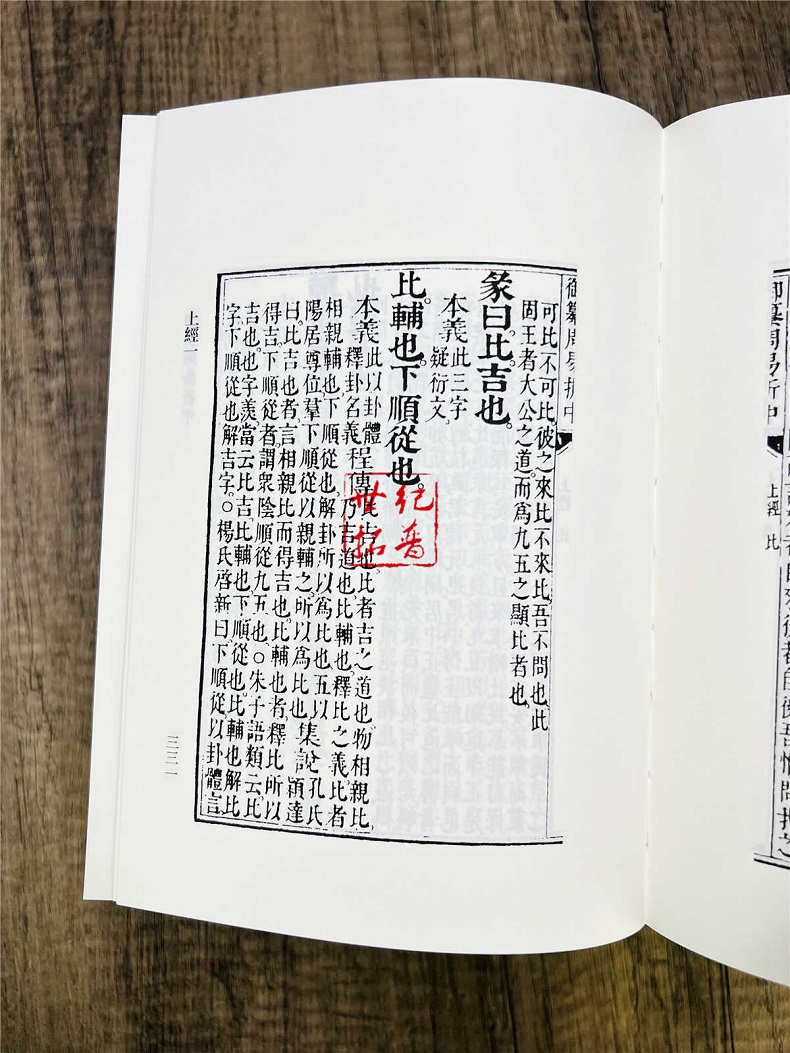 御纂周易折中
上經 比
御纂周易折中
可比不可比。彼之來比不來比。吾不問也。此
固王者大公之道。而爲九五之顯比者也。
彖曰。比吉也。
本義 此三字
疑衍文。
比。輔也。下順從也。
本義 此以卦體 程傳 比吉也。比者吉之道也。物相親比。
釋卦名義 乃吉道也。比輔也。釋比之義。比者
相親輔也。下順從也。解卦所以爲比也。五以
陽居尊位。羣下順從以親輔之。所以爲比也。 集說 孔氏穎達
曰。比吉也者。言相親比而得吉也。比輔也者。釋比所以
得吉。下順從者。謂衆陰順從九五也。○朱子語類云。比
吉也。也字羨。當云比吉。比輔也。下順從也。比輔也解比
字。下順從也解吉字。○楊氏啓新曰。下順從。以卦體言
上經一
三三一
世紀
拓普